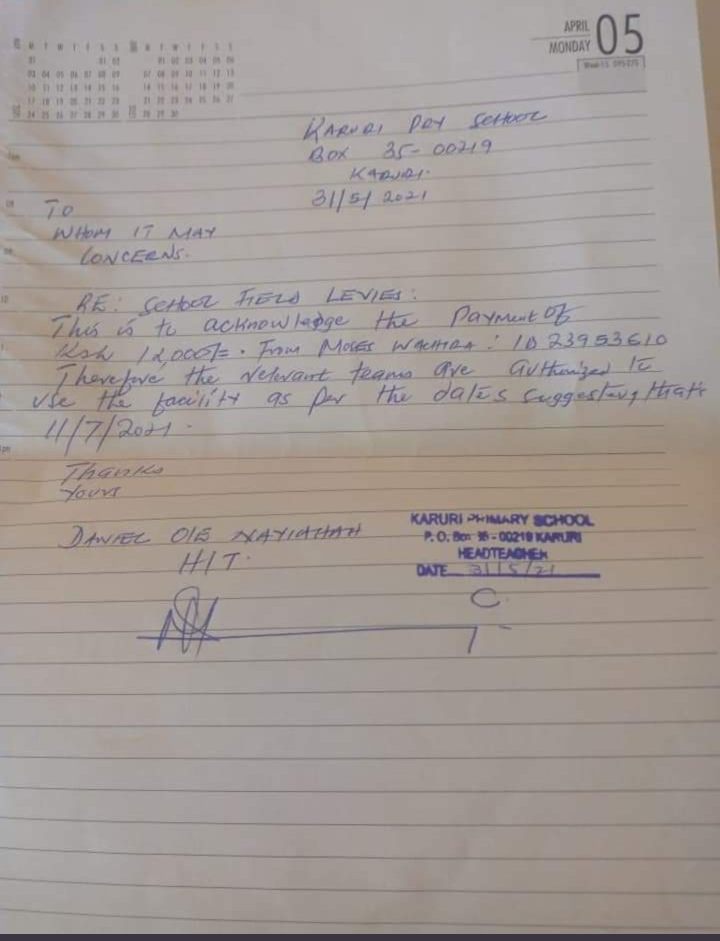 APRIL
MONDAY 05
KARURI PRY SCHOOL
BOX 35-00219
KARURI.
31/5/2021
TO
WHOM IT MAY
CONCERNS.
RE: SCHOOL FIELD LEVIES:
This is to acknowledge the Payment of
Ksh 12,000/=. From MOSES WACHIRA: ID 23953610
Therefore the relevant teams are authorized to
use the facility as per the dates suggesting that's
11/7/2021.
Thanks
Yours
DANIEL OLE
H/T.
KARURI PRIMARY SCHOOL
P. O. Box 35 - 00219 KARURI
HEADTEACHER
DATE 31/5/21